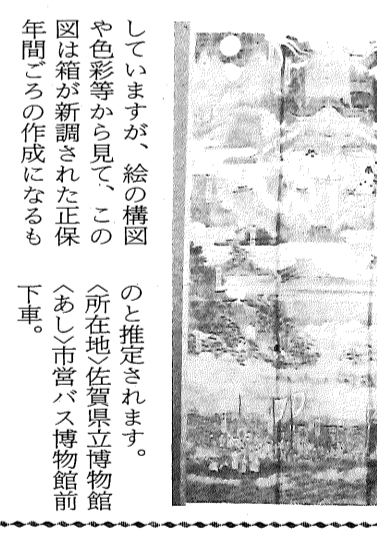 していますが、絵の構図
や色彩等から見て、この
図は箱が新調された正保
年間ごろの作成になるも
のと推定されます。
〈所在地〉佐賀県立博物館
〈あし〉市営バス博物館前
下車。